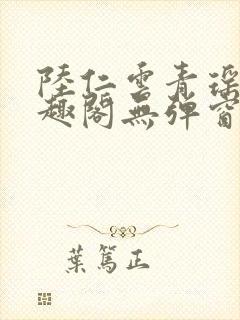 陸仁雲青瑤
趣閣無彈窗
葉篤正